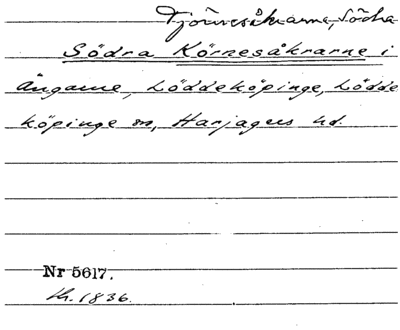 Tjörnesåkrarna, Södra
Södra Körnesåkrarne i
Ängarne, Löddeköpinge, Lödde
köpinge sn, Harjagers hd.
Nr 5617.
1836.